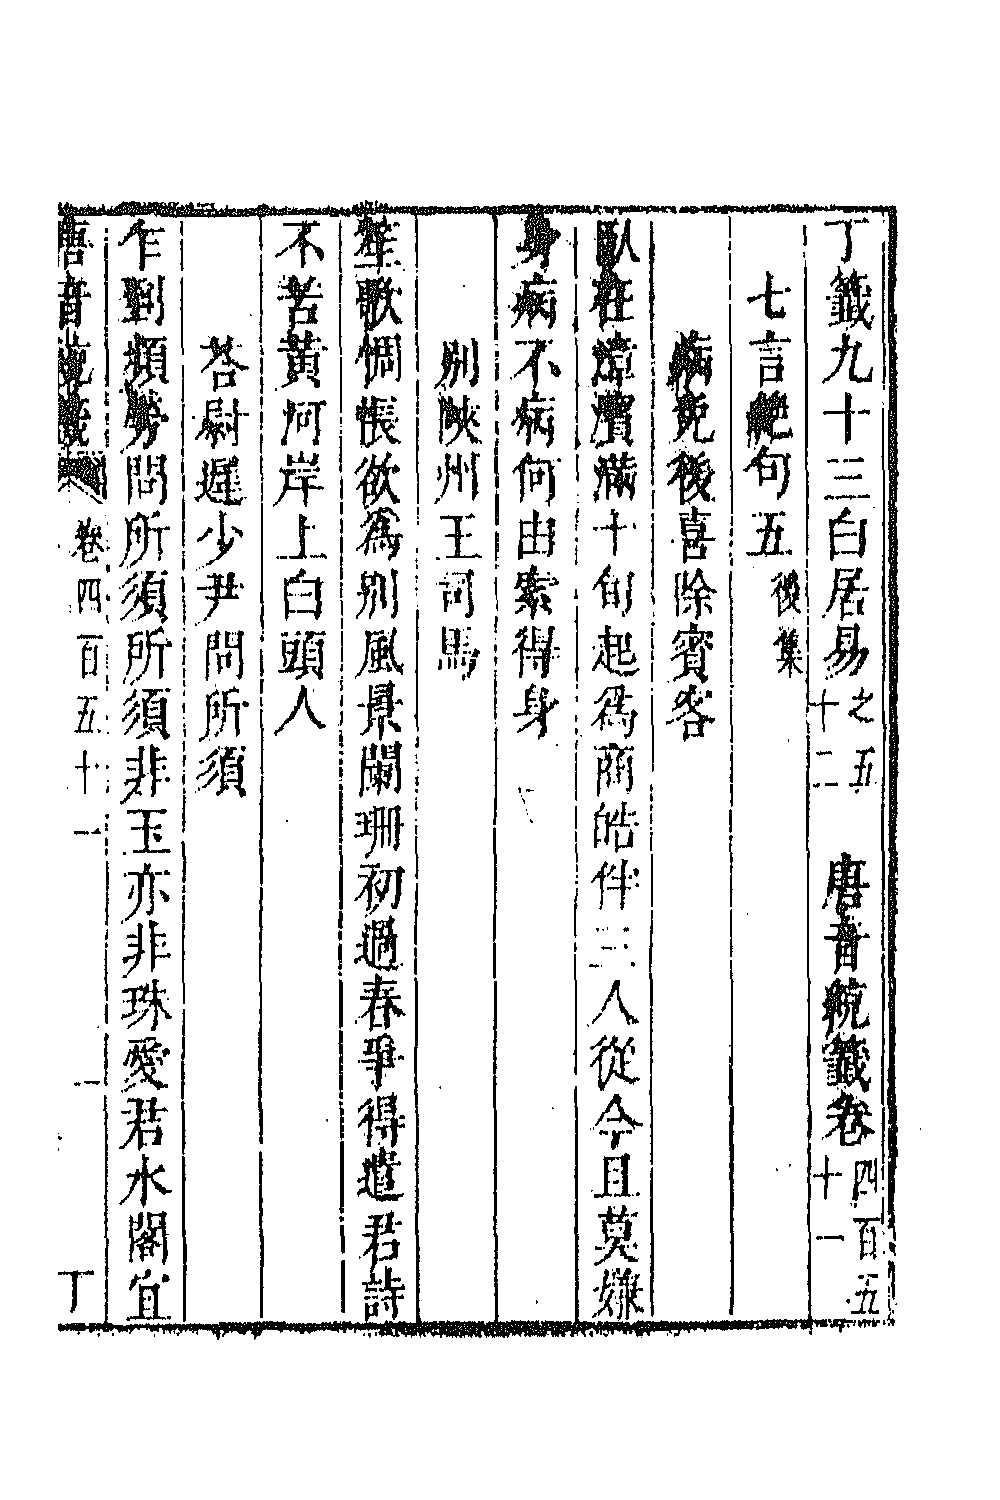 丁籤九十三白居易之五十二 唐音統籤卷四百五十一
七言絶句五後集
病免後喜除賓客
臥在漳濱滿十旬起爲商皓伴三人從今且莫嫌
身病不病何由索得身
別陝州王司馬
笙歌惆悵欲爲別風景闌珊初過春爭得遣君詩
不苦黃河岸上白頭人
荅尉遲少尹問所須
乍到頻勞問所須所須非玉亦非珠愛君水閣宜
唐音統籤 卷四百五十一 一 丁